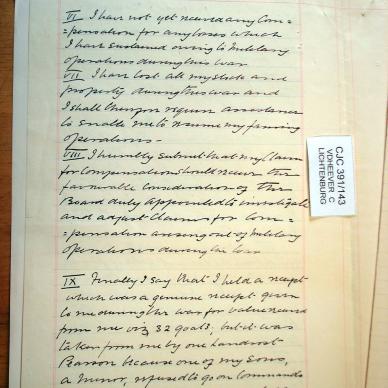 VI I have not yet received any Com=
=pensation for any losses which
I have sustained owing to Military
operations during this war
VII I have lost all my stock and
property during this war and
I shall therefore require assistance
to enable me to resume my farming
operations -
VIII I humbly submit that my Claim
for Compensation should receive the
favourable consideration of the
Board duly appointed to investigate
and adjust Claims for Com=
=pensation arising out of Military
operations during the war
IX Finally I say that I held a receipt
which was a genuine receipt given
to me during the war for value received
from me viz 32 goats, but it was
taken from me by one
Reason because one of my Sons,
a Minor, refused to go on Commando
CJC 391/143
VDHEEVER C
LICHTENBURG